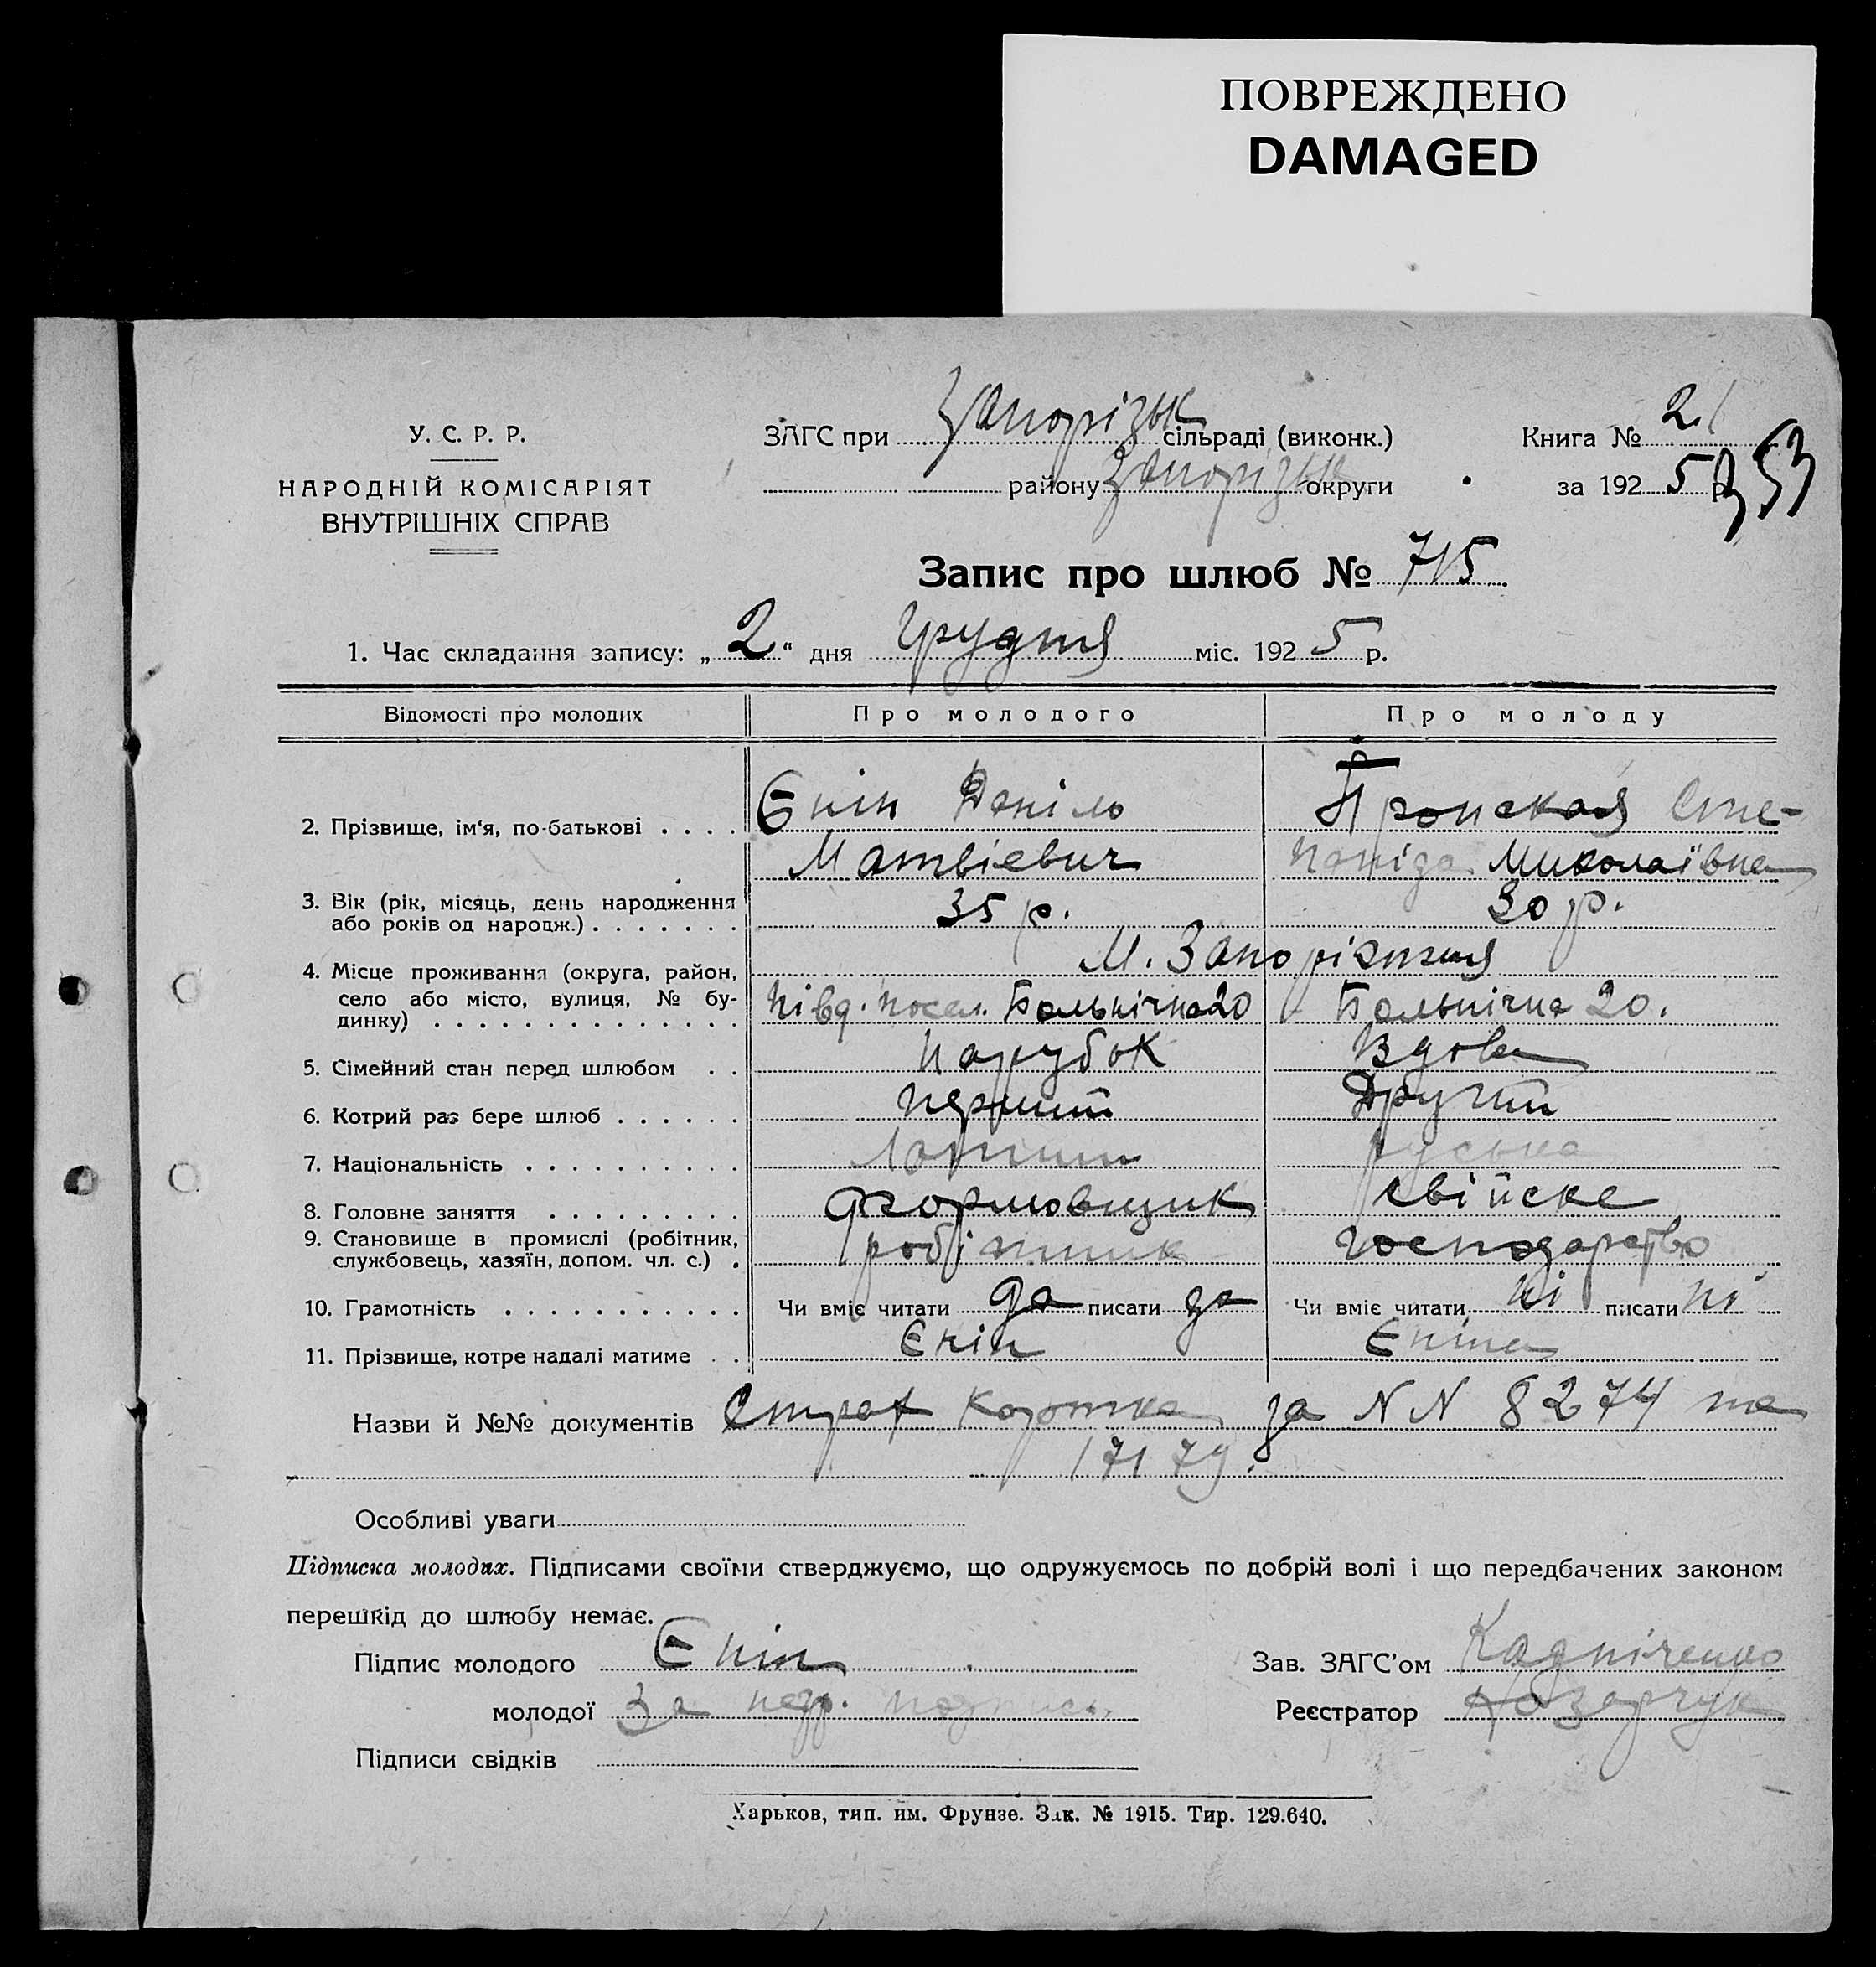 ПОВРЕЖДЕНО
DAMAGED
У. С. Р. Р.
НАРОДНІЙ КОМІСАРІЯТ
ВНУТРІШНІХ СПРАВ
ЗАГС при Запорізьк сільраді (виконк.)
району Запорізьк округи
Книга № 21
за 1925 р.
353
Запис про шлюб № 715
1. Час складання запису: „2“ дня грудня міс. 1925 р.
Відомості про молодих Про молодого Про молоду
2. Прізвище, ім‘я, по-батькові . . . . Єнін Даніло Пронская Сте-
Матвієвич паніда Миколаївна
3. Вік (рік, місяць, день народження
або років од народж.) . . . . . . . 35 р. 30 р.
4. Місце проживання (округа, район, М. Запоріжжя
село або місто, вулиця, № бу-
динку) . . . . . . . . . . . . . . Півд. посел. Больнічна 20 Больнічна 20.
5. Сімейний стан перед шлюбом . . парубок Вдова
6. Котрий раз бере шлюб . . . . . . перший Другий
7. Національність . . . . . . . . . . руська
8. Головне заняття . . . . . . . . . формовщик свійске
9. Становище в промислі (робітник,
службовець, хазяїн, допом. чл. с.) . робітник господарство
10. Грамотність . . . . . . . . . . . Чи вміє читати да писати да Чи вміє читати ні писати ні
11. Прізвище, котре надалі матиме . . Єнін Єніна
Назви й №№ документів Страх картка за NN 8274 та
17179.
Особливі уваги
Підписка молодих. Підписами своїми стверджуємо, що одружуємось по добрій волі і що передбачених законом
перешкід до шлюбу немає.
Підпис молодого Єнін Зав. ЗАГС’ом
молодої За негр. подпись Реєстратор Козарчук
Підписи свідків
Харьков, тип. им. Фрунзе. Зак. № 1915. Тир. 129.640.